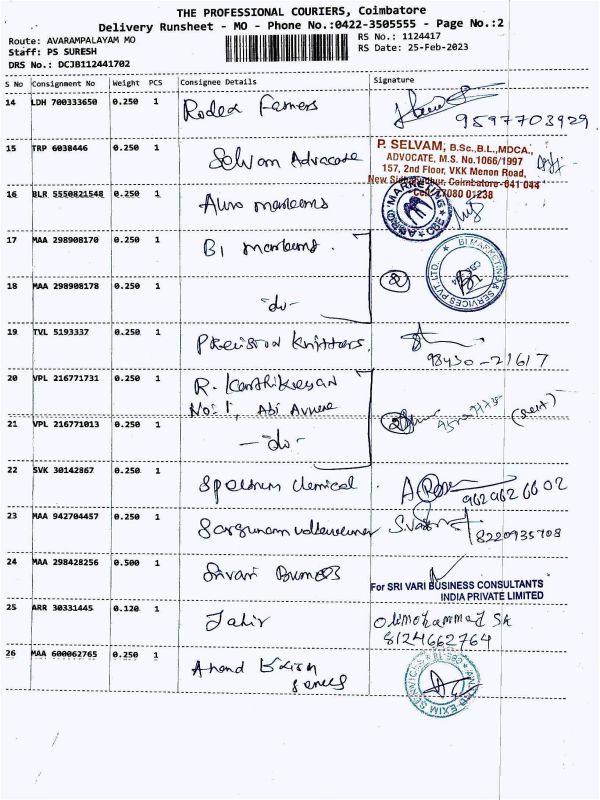 THE PROFESSIONAL COURIERS, Coimbatore
Delivery Runsheet - MO - Phone No.:0422-3505555 - Page No.:2
Route: AVARAMPALAYAM MO
RS No.: 1124417
Staff: PS SURESH
RS Date: 25-Feb-2023
DRS No.: DCJB112441702
S No Consignment No Weight PCS Consignee Details Signature
14 LDH 700333650 0.250 1 Farmers
9597703929
15 TRP 6038446 0.250 1 Selvam Advocate
P. SELVAM, B.Sc.,B.L.,MDCA.,
ADVOCATE, M.S. No.1066/1997
157, 2nd Floor, VKK Menon Road,
New Coimbatore-641 044
Cell: 01238
16 BLR 5550821548 0.250 1
MARKETING CBE
17 MAA 298908170 0.250 1 B1
B1 MARKETING & SERVICES PVT. LTD.
18 MAA 298908178 0.250 1 -do- 2
19 TVL 5193337 0.250 1 Precision Knitters.
98430-21617
20 VPL 216771731 0.250 1 R. Karthikeyan
No: 1, Abi Avnue
21 VPL 216771013 0.250 1 -do- 2
22 SVK 30142867 0.250 1 Spectrum Chemical
962 962 6602
23 MAA 942704457 0.250 1
8220935708
24 MAA 298428256 0.500 1 Srivari
For SRI VARI BUSINESS CONSULTANTS
INDIA PRIVATE LIMITED
25 ARR 30331445 0.120 1 Jahir
8124662764
26 MAA 600062765 0.250 1 Anand
EXIM SERVICES